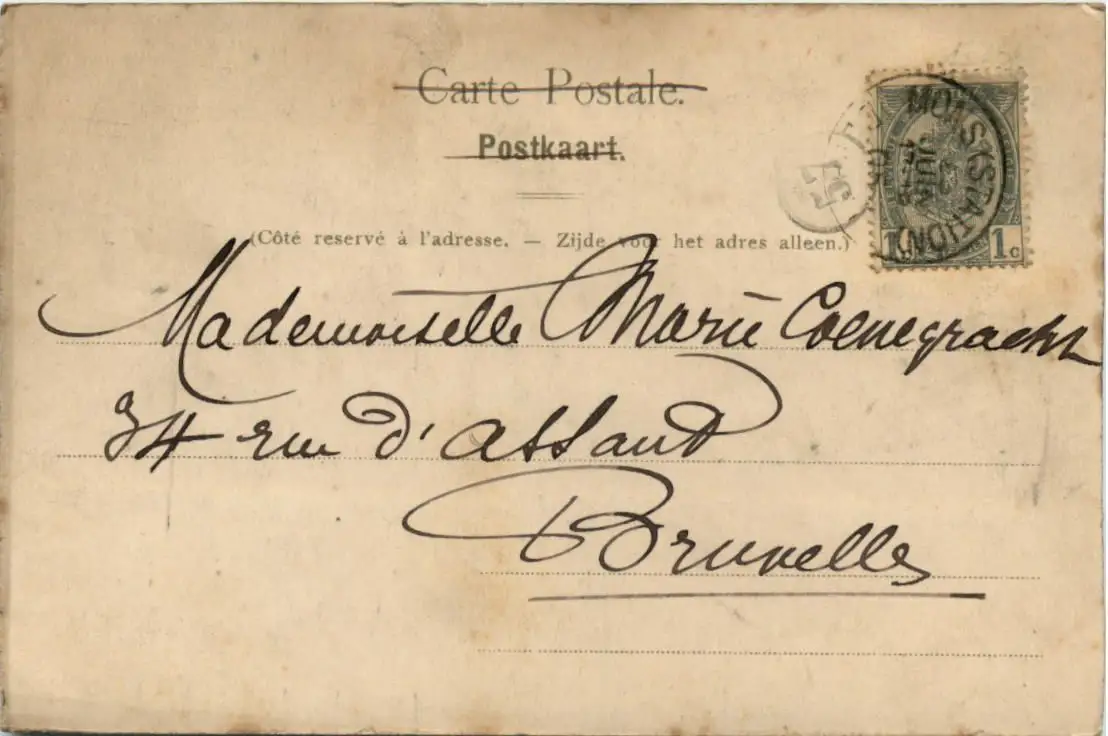 Carte Postale.
Postkaart.
(Côté reservé à l'adresse. — Zijde voor het adres alleen.)
MONS (STATION)
JUIN
1c
Mademoiselle Marie Coenegracht
34 rue d'assaut
Bruxelles